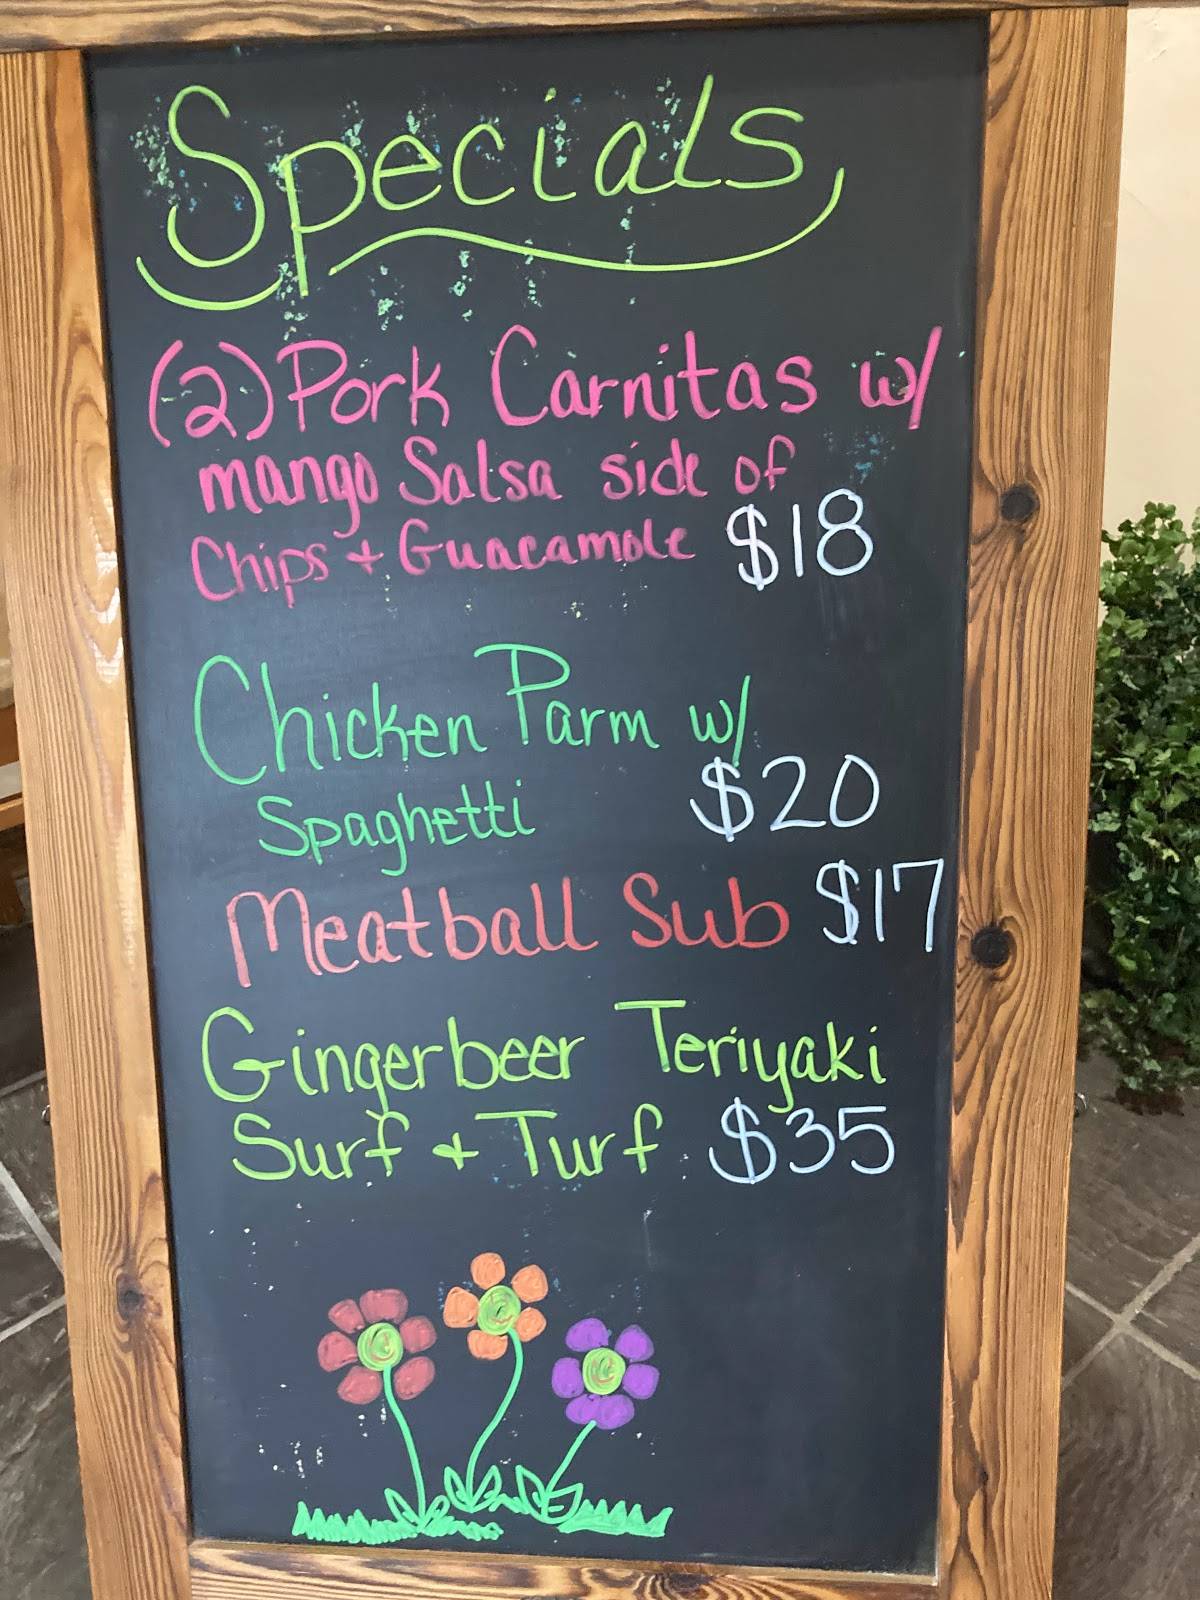 Specials
(2) Pork Carnitas w/
mango Salsa side of
Chips + Guacamole $18
Chicken Parm w/
Spaghetti $20
Meatball Sub $17
Gingerbeer Teriyaki
Surf + Turf $35